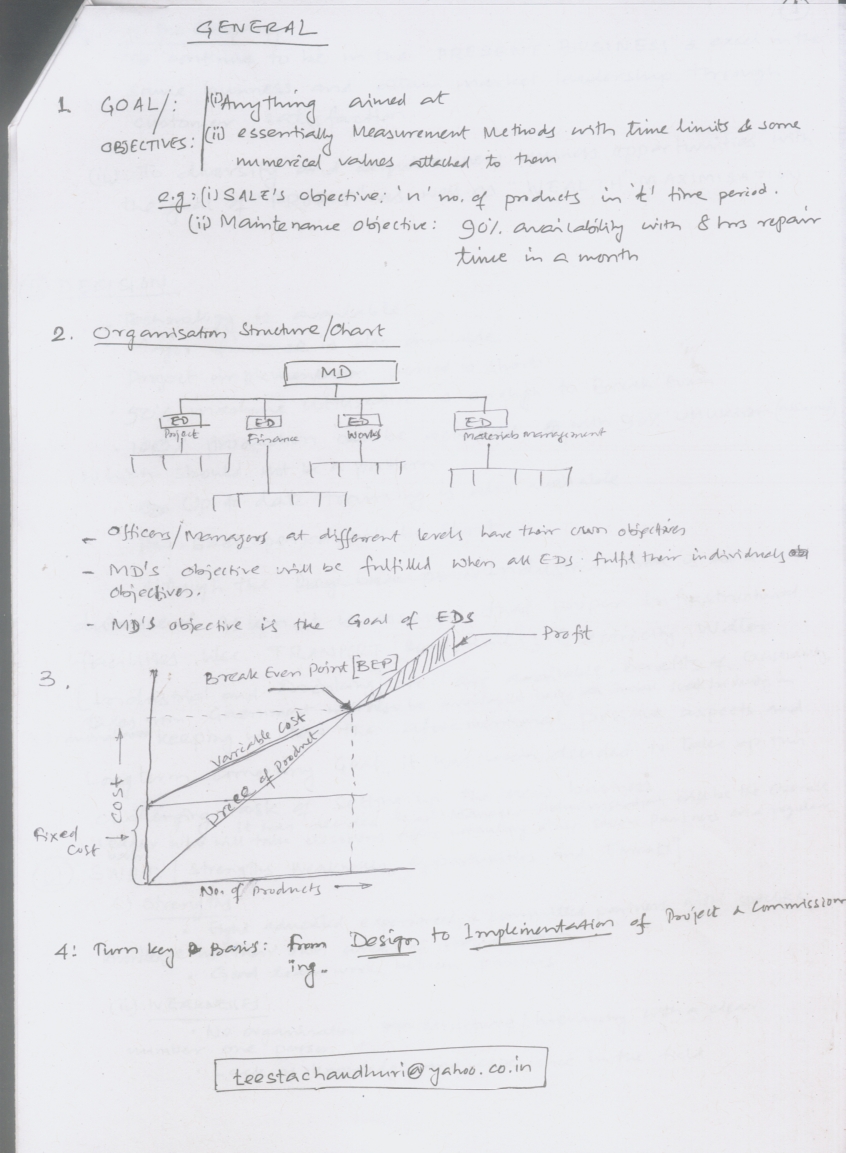 GENERAL
1. GOAL/: (i) Anything aimed at
OBJECTIVES: (ii) essentially Measurement Methods with time limits & some
numerical values attached to them
e.g: (i) SALE'S objective: 'n' no. of products in 't' time period.
(ii) Maintenance objective: 90% availability with 8 hrs repair
time in a month
2. Organisation Structure/Chart
MD
ED ED ED ED
Project Finance Works Materials management
- Officers/Managers at different levels have their own objectives
- MD's objective will be fulfilled when all EDs fulfil their individuals
objectives.
- MD's objective is the Goal of EDS
Profit
3.
Break Even Point [BEP]
Variable cost
Price of Product
COST
Fixed
Cost
No. of Products
4: Turn key Basis: from Design to Implementation of Project & Commission
ing.
teestachaudhuri@yahoo.co.in